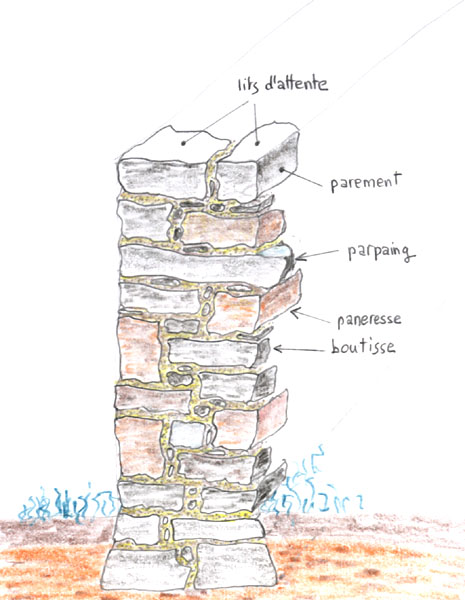 lits d'attente
parement
parpaing
paneresse
boutisse